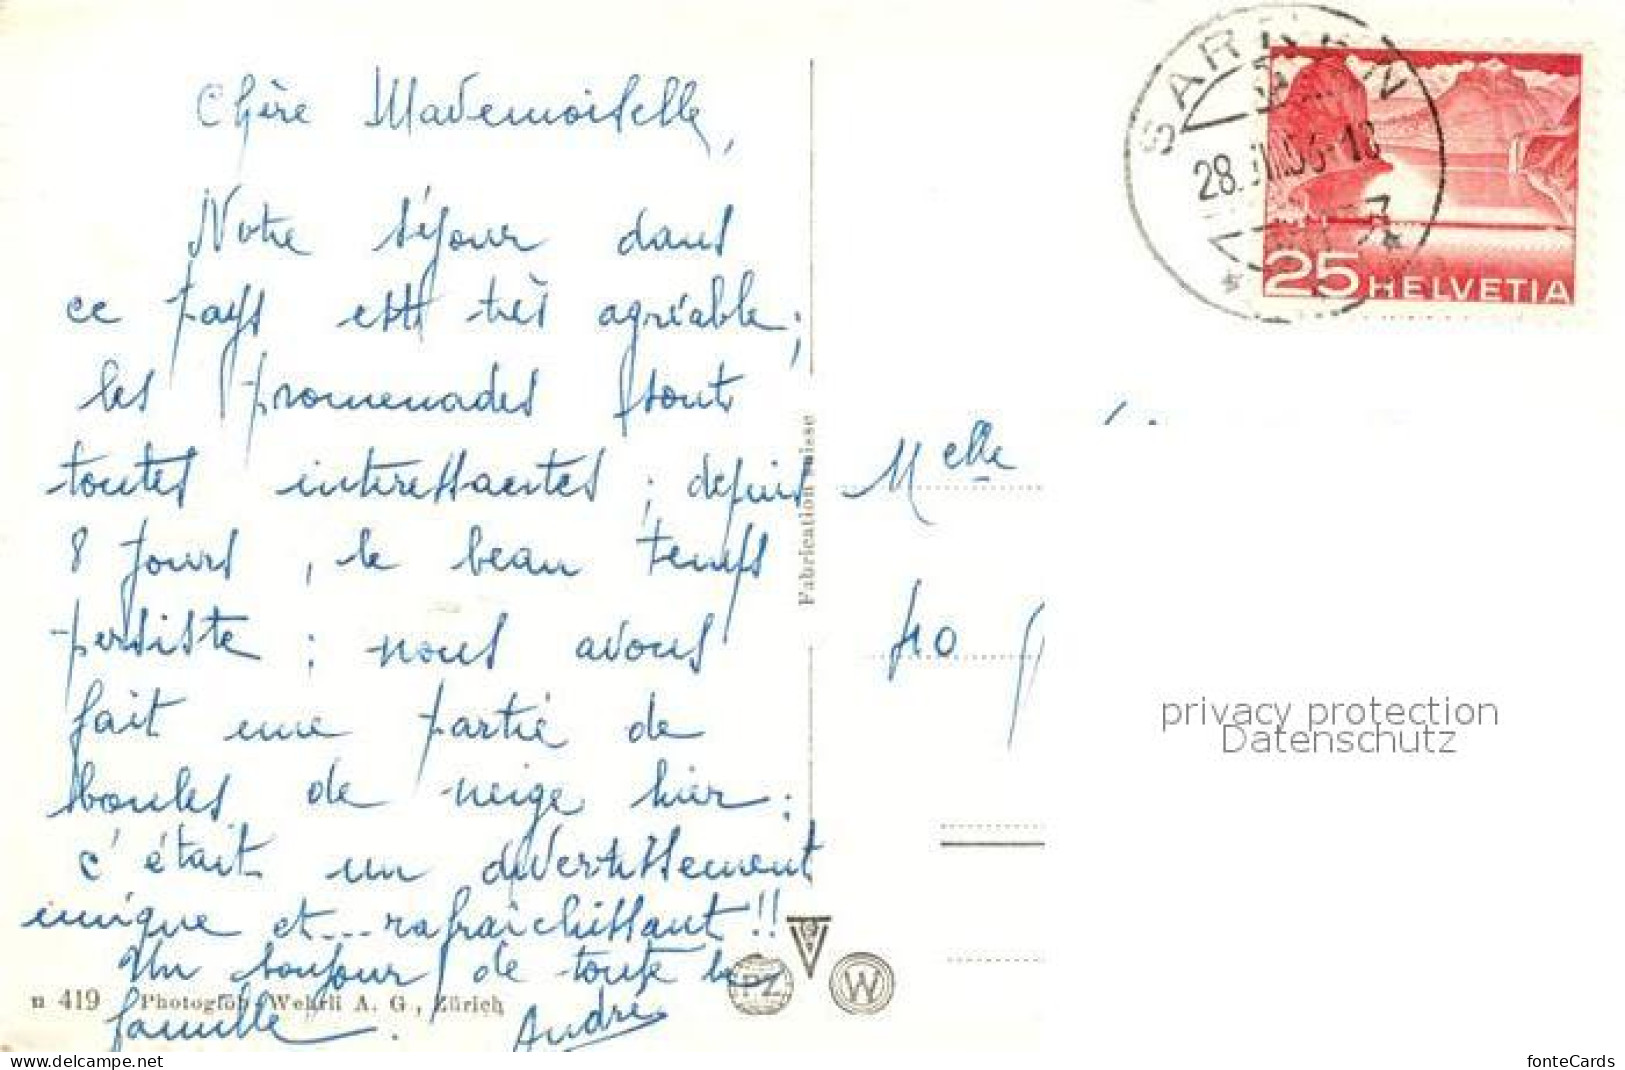 Chère Mademoiselle,
Notre séjour dans
ce pays est très agréable;
les promenades sont
toutes intéressantes ; depuis
8 jours , le beau temps
persiste ; nous avons
fait une partie de
boules de neige hier ;
c'était un divertissement
unique et ... rafraîchissant !!
Un bonjour de toute la
famille . André
u 419 Photoglob-Wehrli A. G., Zürich
Fabrication suisse
PZ
W
SARNEN
28. 56-18
25 HELVETIA
Melle
40
privacy protection
Datenschutz
www.delcampe.net
fonteCards